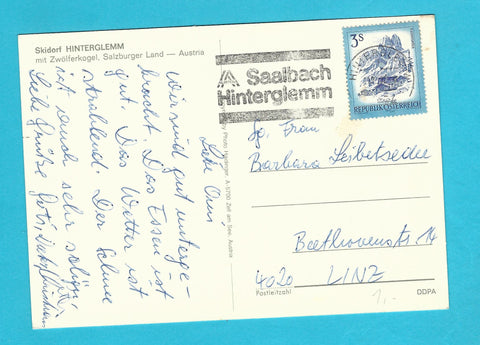 Skidorf HINTERGLEMM
mit Zwölferkogel, Salzburger Land — Austria
Liebe Omi,
Wir sind gut unterge-
bracht. Das Essen ist
gut. Das Wetter ist
strahlend. Der Schnee
ist auch sehr schön.
Liebe Grüße
Photo
A-5700 Zell am See, Austria
Saalbach
Hinterglemm
3S
REPUBLIK ÖSTERREICH
Frau
Barbara Leibetseder
Beethovenstr. 14
4020 LINZ
Postleitzahl
1,-
DDPA